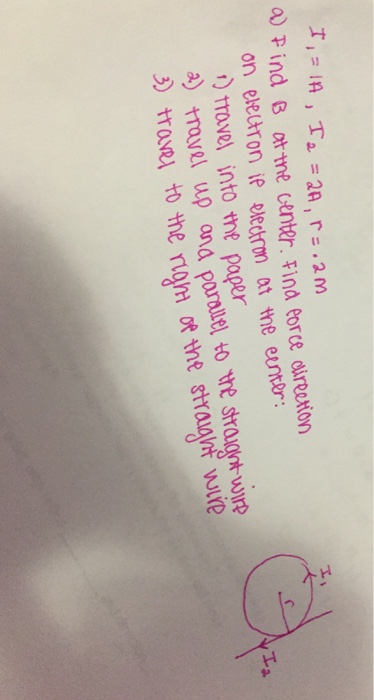 I₁ = 1A, I₂ = 2A, r = .2 m
a) Find B at the center. Find force direction
on electron if electron at the center:
1) travel into the paper
2) travel up and parallel to the straight wire
3) travel to the right of the straight wire
I₁
r
I₂